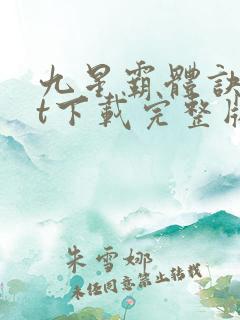 九星霸體訣
t下載完整版
朱雪娜
未任同意禁止转载